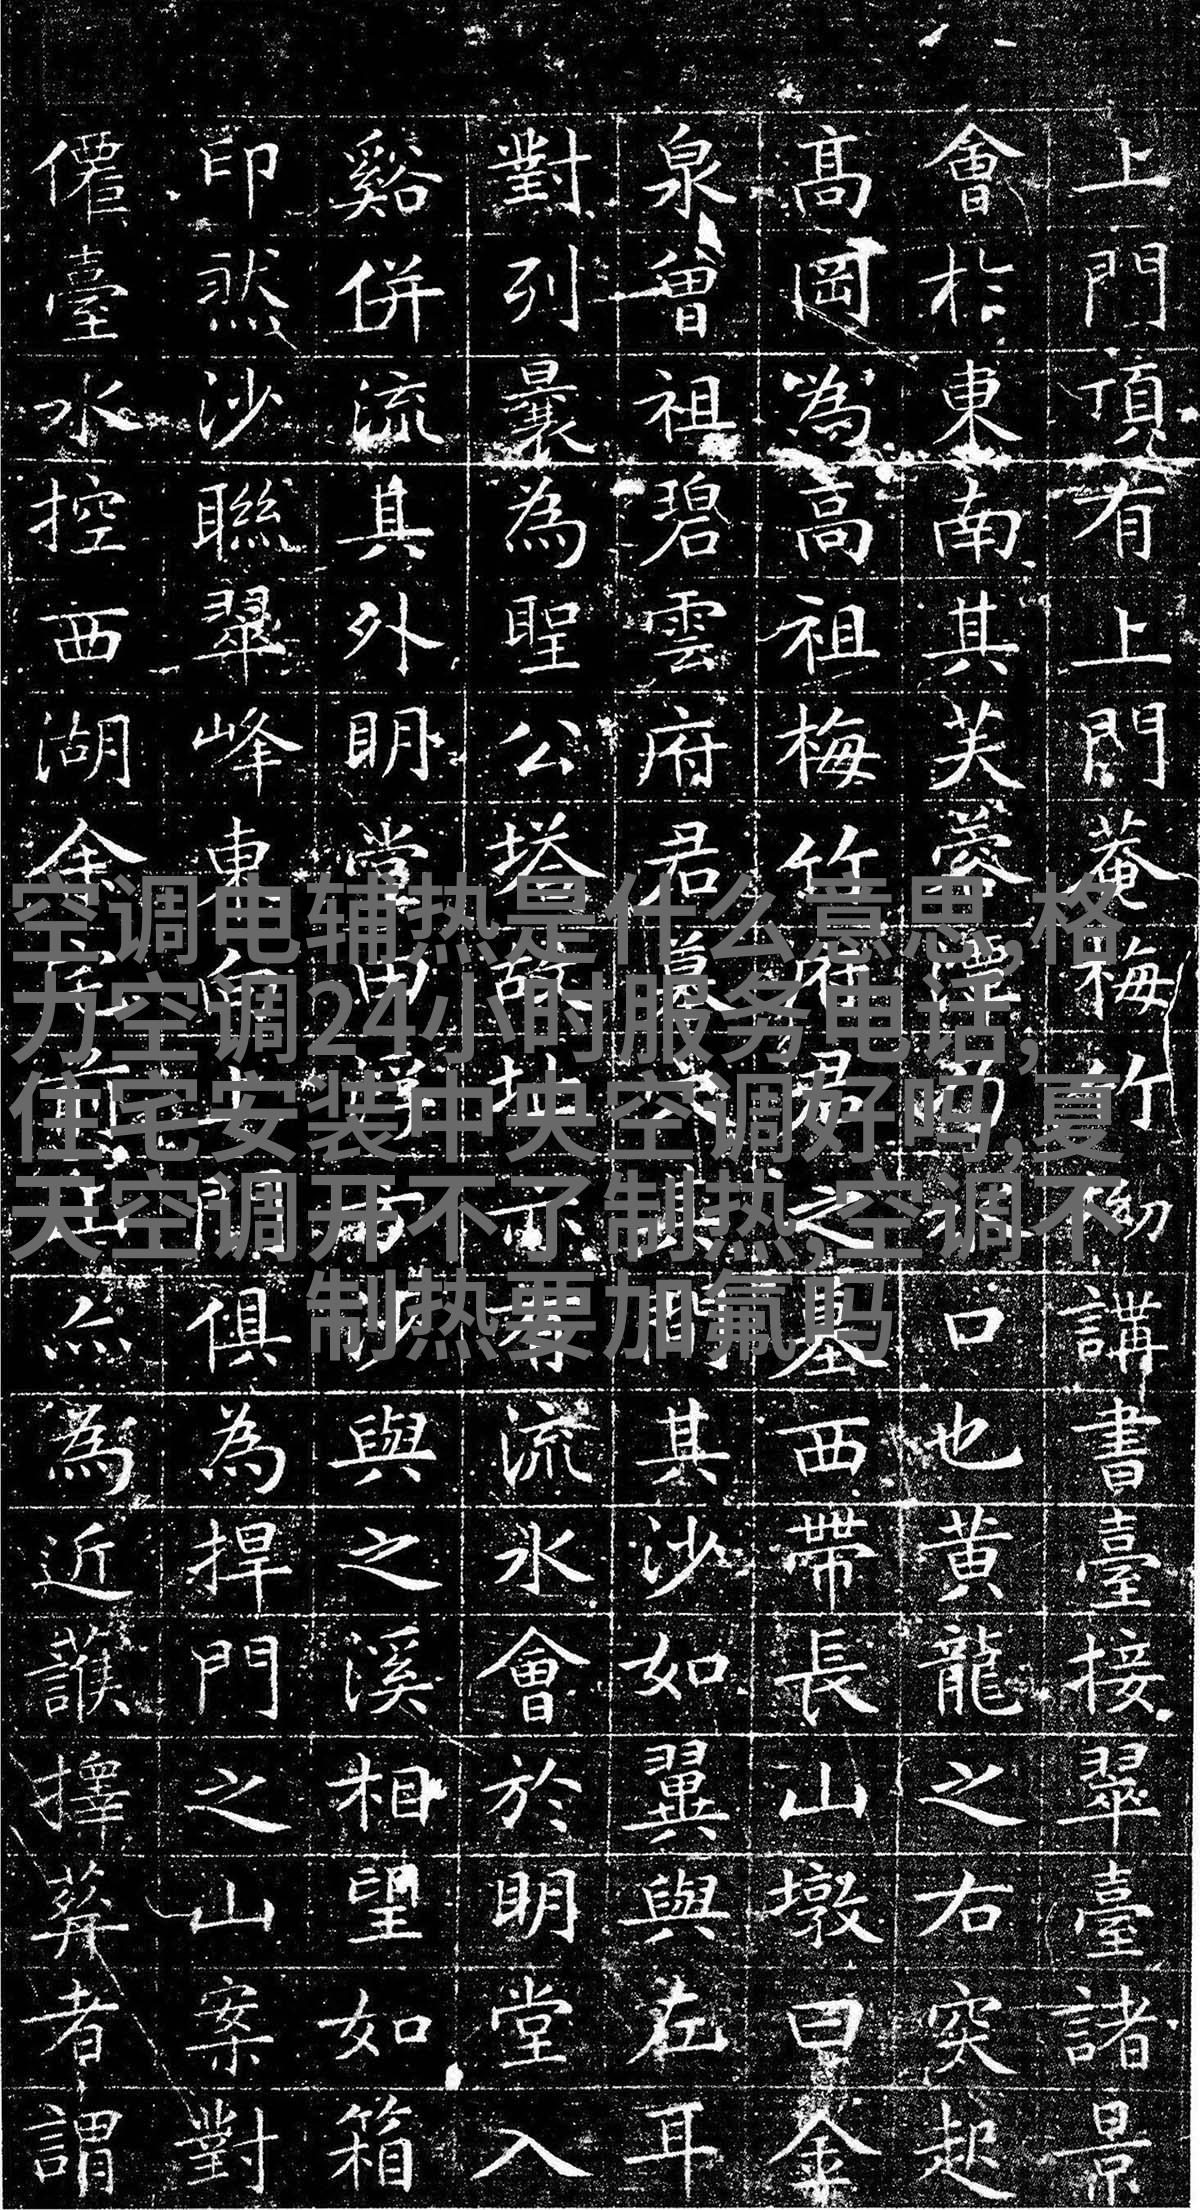 上門頂有上門菴梅竹講書臺接翠臺諸景
會於東南其芙蓉潭水口也黃龍之右突起
高岡為高祖梅竹府君之墓西帶長山墩曰金
泉曾祖碧雲府君墓其門其沙如翼與左耳
對列曩為聖公塔故址流水會於明堂入
谿併流其外明堂田為沙與之溪相望如箱
印然沙聯翠峰東間俱為捍門之山案對
僊臺水控西湖余為近擇葬者謂
空调电辅热是什么意思,格
力空调24小时服务电话,
住宅安装中央空调好吗,夏
天空调开不了制热,空调不
制热要加氟吗